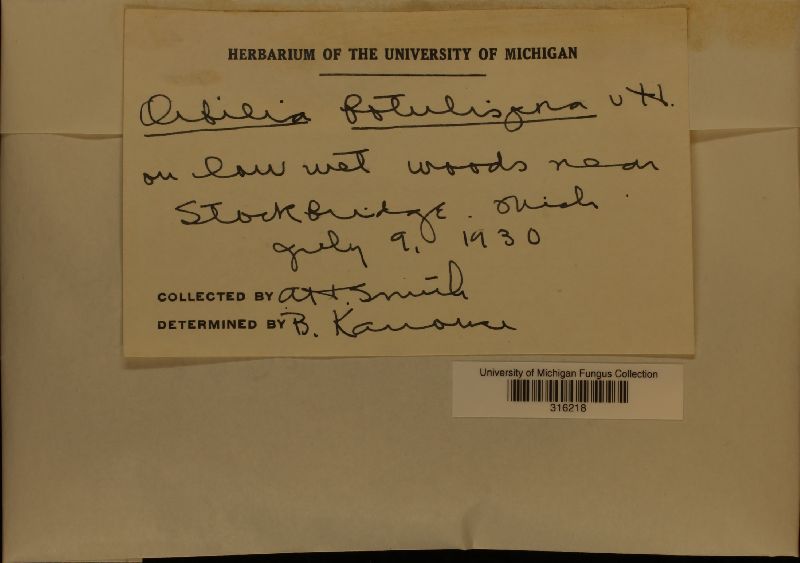 HERBARIUM OF THE UNIVERSITY OF MICHIGAN
Orbilia botulispora v H.
on low wet woods near
Stockbridge. Mich.
July 9, 1930
COLLECTED BY A.H. Smith
DETERMINED BY B. Kanouse
University of Michigan Fungus Collection
316218